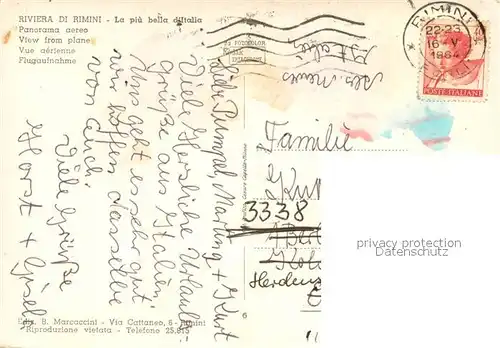 RIVIERA DI RIMINI - La più bella d'Italia
Panorama aereo
View from plane
Vue aérienne
Flugaufnahme
RIMINI
22-23
16 V
1964
POSTE ITALIANE
Italien
Liebe Pumpal, Martina + Kurt
Viele herzliche Urlaubs-
grüße aus Italien.
Uns geht es sehr gut
wir hoffen dasselbe
von Euch.
Viele Grüße
Horst + Gisela
Familie
3338
privacy protection
watermark
6
Ediz. B. Marcaccini - Via Cattaneo, 8 - Rimini
Riproduzione vietata - Telefono 25.815